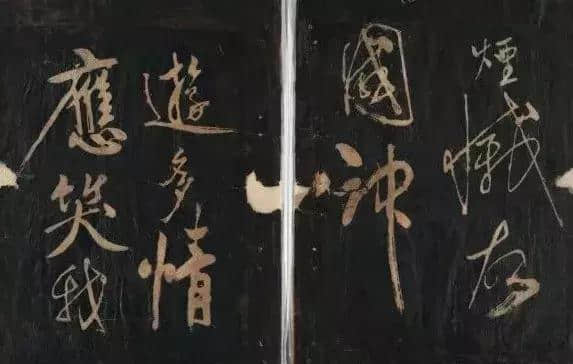 煙滅故
國神
遊多情
應笑我